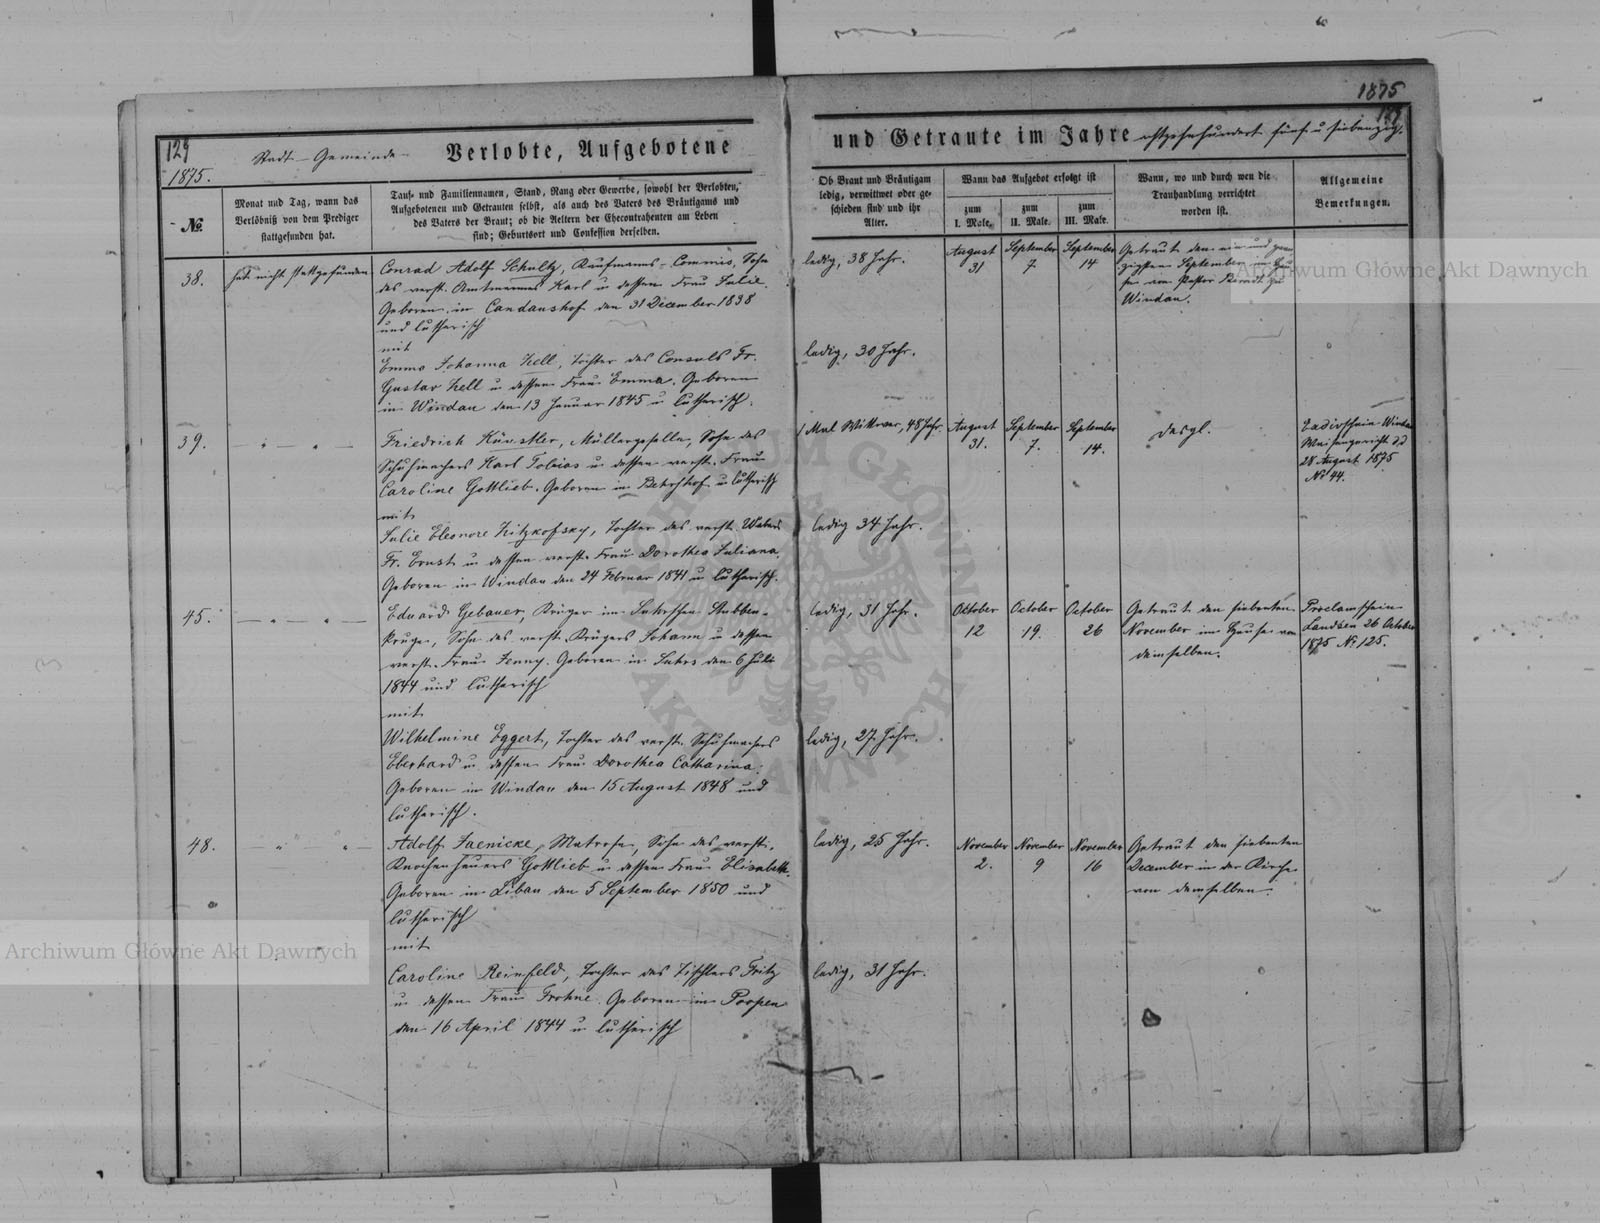 129
1875.
Stadt-Gemeinde
Verlobte, Aufgebotene
No.
Monat und Tag, wann das
Verlöbniß von dem Prediger
stattgefunden hat.
Tauf- und Familiennamen, Stand, Rang oder Gewerbe, sowohl der Verlobten,
Aufgebotenen und Getrauten selbst, als auch des Vaters des Bräutigams und
des Vaters der Braut; ob die Aeltern der Ehecontrahenten am Leben
sind; Geburtsort und Confession derselben.
38.
hat nicht stattgefunden
Conrad Adolf Schultz, Kaufmanns-Commis, Sohn
des verst. Amtmannes Karl u dessen Frau Julie.
Geboren in Candaushof den 31 December 1838
und lutherisch
mit
Emma Johanna Hell, Tochter des Consuls Fr.
Gustav Hell u dessen Frau Emma. Geboren
in Windau den 13 Januar 1845 u lutherisch.
39.
Friedrich Künstler, Müllergeselle, Sohn des
Schuhmachers Karl Tobias u dessen verst. Frau
Caroline Gottlieb. Geboren in u lutherisch
mit
Julie Eleonore Kitzkofsky, Tochter des verst.
Fr. Ernst u dessen verst. Frau Dorothea Juliana.
Geboren in Windau den 24 Februar 1841 u lutherisch.
45.
Eduard Gebauer, Krüger im
kruge, Sohn des verst. Krügers Johann u dessen
verst. Frau Jenny. Geboren in den 6 Juli
1844 und lutherisch
mit
Wilhelmine Eggert, Tochter des verst. Schuhmachers
Eberhard u dessen Frau Dorothea Catharina.
Geboren in Windau den 15 August 1848 und
lutherisch.
48.
Adolf Jaenicke, Matrose, Sohn des verst.
Knochenhauers Gottlieb u dessen Frau Elisabeth.
Geboren in Libau den 5 September 1850 und
lutherisch
mit
Caroline Reinfeld, Tochter des Tischlers Fritz
u dessen Frau Trohne. Geboren in Poopen
den 16 April 1844 u lutherisch
1875
129
und Getraute im Jahre achtzehnhundert fünf u siebenzig.
Ob Braut und Bräutigam
ledig, verwittwet oder ge-
schieden sind und ihr
Alter.
Wann das Aufgebot erfolgt ist
zum
I. Male.
zum
II. Male.
zum
III. Male.
Wann, wo und durch wen die
Trauhandlung verrichtet
worden ist.
Allgemeine
Bemerkungen.
ledig, 38 Jahr.
August
31
September
7
September
14
Getraut den ein und zwan
zigsten September im Hau
se vom Pastor Berndt zu
Windau.
ledig, 30 Jahr.
1 Mal Wittwer, 48 Jahr.
August
31.
September
7.
September
14.
Desgl.
Windau
Waisengericht d.d
28 August 1875
No 44.
ledig 34 Jahr.
ledig, 31 Jahr.
October
12
October
19.
October
26
Getraut den siebenten
November im Hause von
demselben.
Proclamschein
Landsen 26 October
1875 No 125.
ledig, 27 Jahr.
ledig, 25 Jahr.
November
2.
November
9
November
16
Getraut den siebenten
December in der Kirche
von demselben.
ledig, 31 Jahr.
Archiwum Główne Akt Dawnych
Archiwum Główne Akt Dawnych
ARCHIWUM GŁÓWNE AKT DAWNYCH